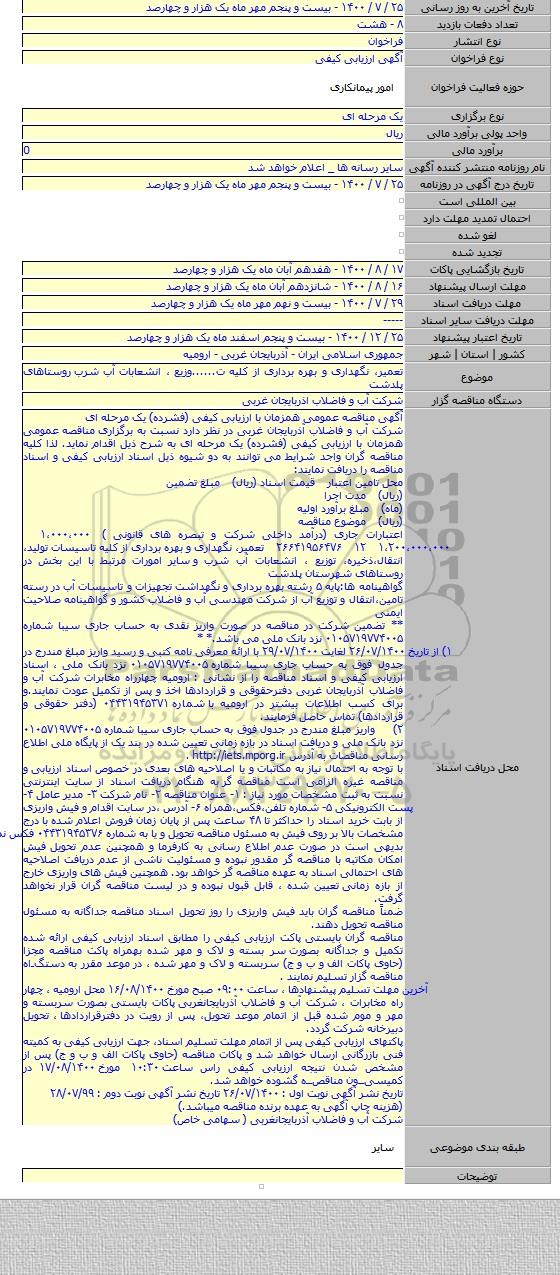 تاریخ آخرین به روز رسانی ۲۵ / ۷ / ۱۴۰۰ - بیست و پنجم مهر ماه یک هزار و چهارصد
تعداد دفعات بازدید ۸ - هشت
نوع انتشار فراخوان
نوع فراخوان آگهی ارزیابی کیفی
حوزه فعالیت فراخوان امور پیمانکاری
نوع برگزاری یک مرحله ای
واحد پولی برآورد مالی ریال
برآورد مالی 0
نام روزنامه منتشر کننده آگهی سایر رسانه ها _ اعلام خواهد شد
تاریخ درج آگهی در روزنامه ۲۵ / ۷ / ۱۴۰۰ - بیست و پنجم مهر ماه یک هزار و چهارصد
بین المللی است
احتمال تمدید مهلت دارد
لغو شده
تجدید شده
تاریخ بازگشایی پاکات ۱۷ / ۸ / ۱۴۰۰ - هفدهم آبان ماه یک هزار و چهارصد
مهلت ارسال پیشنهاد ۱۶ / ۸ / ۱۴۰۰ - شانزدهم آبان ماه یک هزار و چهارصد
مهلت دریافت اسناد ۲۹ / ۷ / ۱۴۰۰ - بیست و نهم مهر ماه یک هزار و چهارصد
مهلت دریافت سایر اسناد -----
تاریخ اعتبار پیشنهاد ۲۵ / ۱۲ / ۱۴۰۰ - بیست و پنجم اسفند ماه یک هزار و چهارصد
کشور | استان | شهر جمهوری اسلامی ایران - آذربایجان غربی - ارومیه
موضوع تعمیر، نگهداری و بهره برداری از کلیه ت......وزیع ، انشعابات آب شرب روستاهای
پلدشت
دستگاه مناقصه گزار شرکت آب و فاضلاب اذربایجان غربی
محل دریافت اسناد
آگهی مناقصه عمومی همزمان با ارزیابی کیفی (فشرده) یک مرحله ای
شرکت آب و فاضلاب آذربایجان غربی در نظر دارد نسبت به برگزاری مناقصه عمومی
همزمان با ارزیابی کیفی (فشرده) یک مرحله ای به شرح ذیل اقدام نماید. لذا کلیه
مناقصه گران واجد شرایط می توانند به دو شیوه ذیل اسناد ارزیابی کیفی و اسناد
مناقصه را دریافت نمایند:
محل تامین اعتبار قیمت اسناد (ریال) مبلغ تضمین
(ریال) مدت اجرا
(ماه) مبلغ برآورد اولیه
(ریال) موضوع مناقصه
اعتبارات جاری (درآمد داخلی شرکت و تبصره های قانونی ) ۱،۰۰۰،۰۰۰
۱،۲۰۰،۰۰۰،۰۰۰ ۱۲ ۲۶۶۴۱۹۵۶۴۷۶ تعمیر، نگهداری و بهره برداری از کلیه تاسیسات تولید،
انتقال،ذخیره، توزیع ، انشعابات آب شرب و سایر امورات مرتبط با این بخش در
روستاهای شهرستان پلدشت
گواهینامه ها:پایه ۵ رشته بهره برداری و نگهداشت تجهیزات و تاسیسات آب در رسته
تامین،انتقال و توزیع آب از شرکت مهندسی آب و فاضلاب کشور و گواهینامه صلاحیت
ایمنی
** تضمین شرکت در مناقصه در صورت واریز نقدی به حساب جاری سیبا شماره
۰۱۰۵۷۱۹۷۷۴۰۰۵ نزد بانک ملی می باشد.* *
۱) از تاریخ ۲۶/۰۷/۱۴۰۰ لغایت ۲۹/۰۷/۱۴۰۰ با ارائه معرفی نامه کتبی و رسید واریز مبلغ مندرج در
جدول فوق به حساب جاری سیبا شماره ۰۱۰۵۷۱۹۷۷۴۰۰۵ نزد بانک ملی ، اسناد
ارزیابی کیفی و اسناد مناقصه را از نشانی : ارومیه چهارراه مخابرات شرکت آب و
فاضلاب اذربایجان غربی دفترحقوقی و قراردادها اخذ و پس از تکمیل عودت نمایند.و
برای کسب اطلاعات بیشتر در ارومیه با شماره ۰۴۴۳۱۹۴۵۳۷۱ (دفتر حقوقی و
قراردادها) تماس حاصل فرمایند.
۲) واریز مبلغ مندرج در جدول فوق به حساب جاری سیبا شماره ۰۱۰۵۷۱۹۷۷۴۰۰۵
نزد بانک ملی و دریافت اسناد در بازه زمانی تعیین شده در بند یک از پایگاه ملی اطلاع
رسانی مناقصات به آدرس http://iets.mporg.ir .
با توجه به احتمال نیاز به مکاتبات و یا اصلاحیه های بعدی در خصوص اسناد ارزیابی و
مناقصه غیره الزامی است مناقصه گران هنگام دریافت اسناد از سایت اینترنتی
نسبت به ثبت مشخصات مورد نیاز : ۱- عنوان مناقصه ۲- نام شرکت ۳- مدیر عامل ۴-
پست الکترونیکی ۵- شماره تلفن،فکس،همراه ۶- آدرس ،در سایت اقدام و فیش واریزی
از بابت خرید اسناد را حداکثر تا ۴۸ ساعت پس از پایان زمان فروش اعلام شده با درج
مشخصات بالا بر روی فیش به مسئول مناقصه تحویل و یا به شماره ۰۴۴۳۱۹۴۵۳۷۶ فکس
بدیهی است در صورت عدم اطلاع رسانی به کارفرما و همچنین عدم تحویل فیش
امکان مکاتبه با مناقصه گر مقدور نبوده و مسئولیت ناشی از عدم دریافت اصلاحیه
های احتمالی اسناد به عهده مناقصه گر خواهد بود. همچنین فیش های واریزی خارج
از بازه زمانی تعیین شده ، قابل قبول نبوده و در لیست مناقصه گران قرار نخواهد
گرفت.
ضمناً مناقصه گران باید فیش واریزی را روز تحویل اسناد مناقصه جداگانه به مسئول
مناقصه تحویل دهند.
مناقصه گران بایستی پاکت ارزیابی کیفی را مطابق اسناد ارزیابی کیفی ارائه شده
تکمیل و جداگانه بصورت سر بسته و لاک و مهر شده بهمراه پاکت مناقصه مجزا
(حاوی پاکات الف و ب و ج) سربسته و لاک و مهر شده ، در موعد مقرر به دستگـاه
مناقصه گزار تسلیم نمایند .
آخرین مهلت تسلیم پیشنهادها ، ساعت ۰۹:۰۰ صبح مورخ ۱۶/۰۸/۱۴۰۰ محل ارومیه ، چهار
راه مخابرات ، شرکت آب و فاضلاب آذربایجانغربی پاکات بایستی بصورت سربسته و
مهر و موم شده قبل از اتمام موعد تحویل، پس از رویت در دفترقراردادها ، تحویل
دبیرخانه شرکت گردد.
پاکتهای ارزیابی کیفی پس از اتمام مهلت تسلیم اسناد، جهت ارزیابی کیفی به کمیته
فنی بازرگانی ارسال خواهد شد و پاکات مناقصه (حاوی پاکات الف و ب و ج) پس از
مشخص شدن نتیجه ارزیابی کیفی راس ساعت ۱۰:۳۰ مورخ ۱۷/۰۸/۱۴۰۰ در
کمیسیـون مناقصـه گشوده خواهد شد.
تاریخ نشر آگهی نوبت اول : ۲۶/۰۷/۱۴۰۰ تاریخ نشر آگهی نوبت دوم : ۲۸/۰۷/۹۹
(هزینه چاپ آگهی به عهده برنده مناقصه میباشد.)
شرکت آب و فاضلاب آذربایجانغربی ( سهامی خاص)
طبقه بندی موضوعی سایر
توضیحات